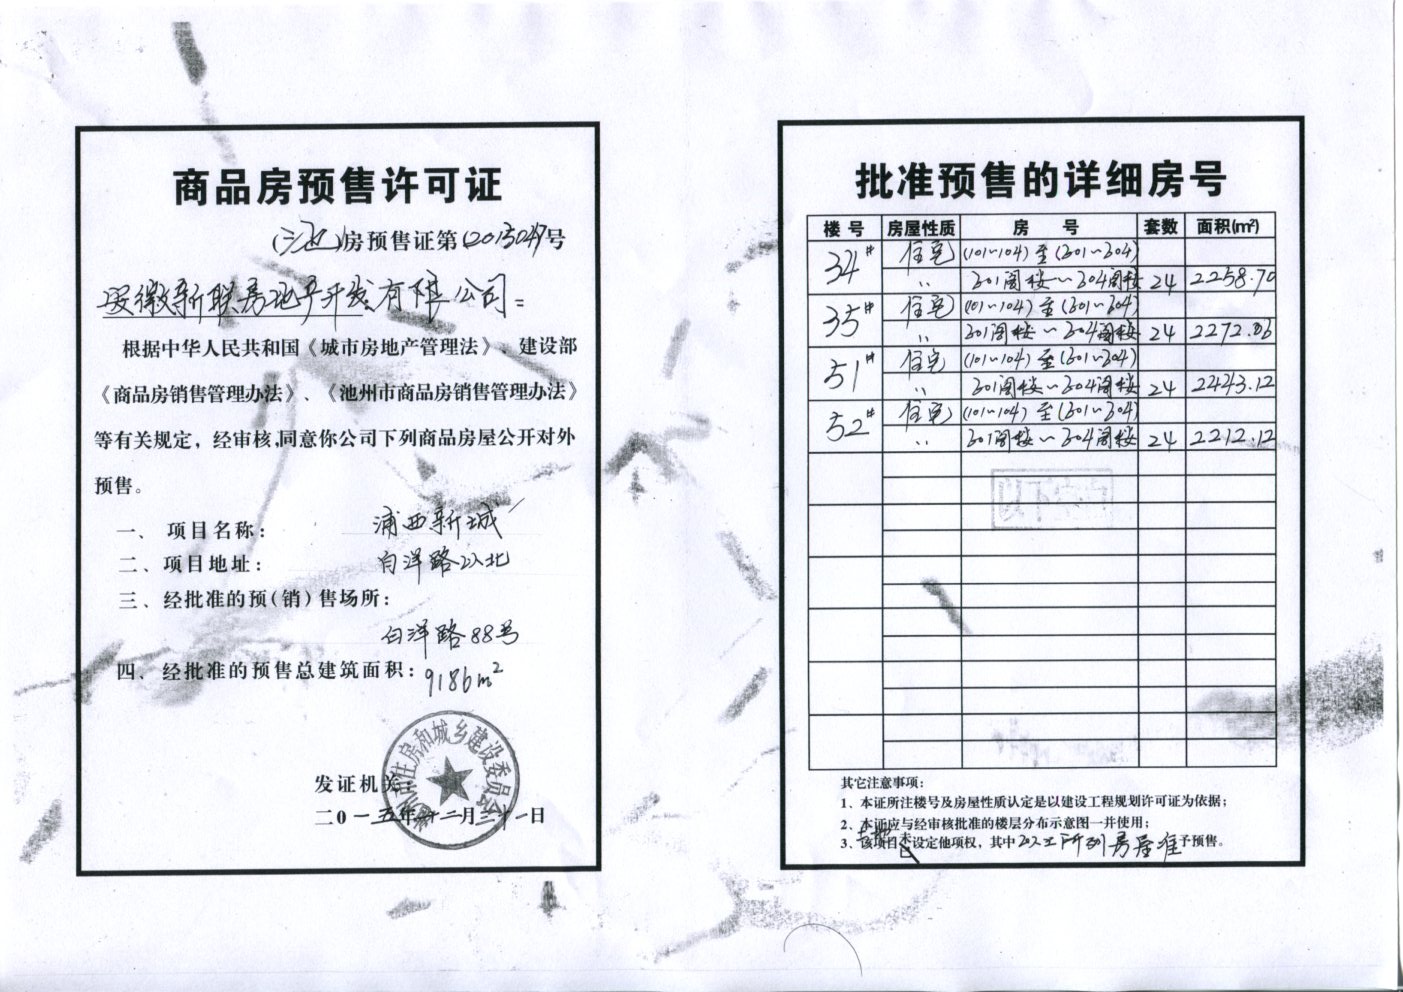 商品房预售许可证
(池)房预售证第(2015049号
安徽新联房地产开发有限公司:
根据中华人民共和国《城市房地产管理法》、建设部
《商品房销售管理办法》、《池州市商品房销售管理办法》
等有关规定，经审核,同意你公司下列商品房屋公开对外
预售。
一、项目名称: 浦西新城
二、项目地址: 白洋路以北
三、经批准的预(销)售场所:
白洋路88号
四、经批准的预售总建筑面积: 9186m²
池州市住房和城乡建设委员会
发证机关:
二0一五年十二月三十一日
批准预售的详细房号
楼号 房屋性质 房号 套数 面积(m²)
34# 住宅 (101~104)至(301~304)
〃 301阁楼~304阁楼 24 2258.70
35# 住宅 (101~104)至(301~304)
〃 301阁楼~304阁楼 24 2272.06
51# 住宅 (101~104)至(301~304)
〃 301阁楼~304阁楼 24 2443.12
52# 住宅 (101~104)至(301~304)
〃 301阁楼~304阁楼 24 2212.12
以下空白
其它注意事项:
1、本证所注楼号及房屋性质认定是以建设工程规划许可证为依据;
2、本证应与经审核批准的楼层分布示意图一并使用;
3、该项目土地未设定他项权，其中以上所列房屋准予预售。